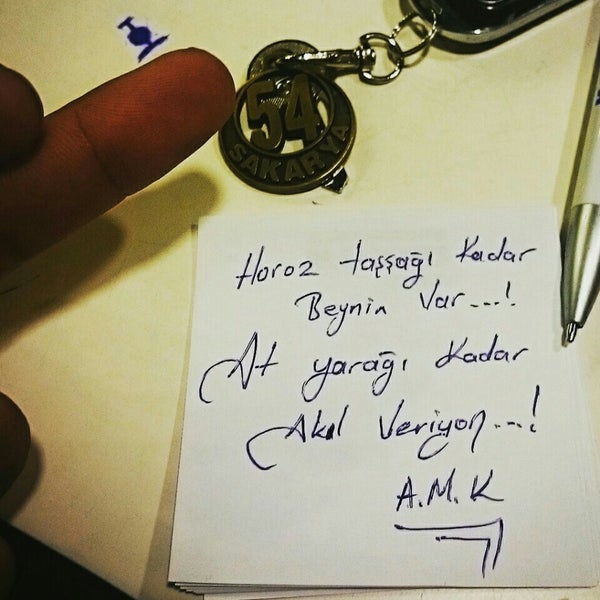 54
SAKARYA
Horoz taşşağı Kadar
Beynin Var...!
At yarağı Kadar
Akıl Veriyon...!
A.M.K